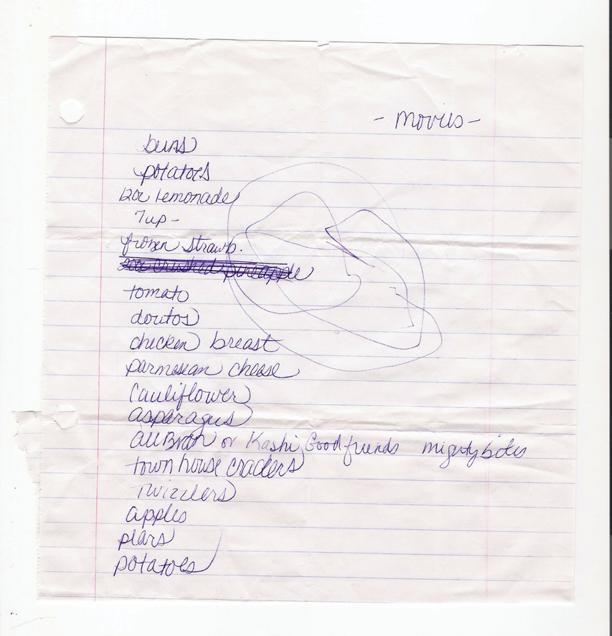 - Movies -
buns
potatoes
12oz Lemonade
7up -
frozen strawb.
20oz crushed pineapple
tomato
doritos
chicken breast
parmesean cheese
Cauliflower
asparagus
All Bran or Kashi Good friends mighty bites
town house crackers
Twizzlers
apples
pears
potatoes